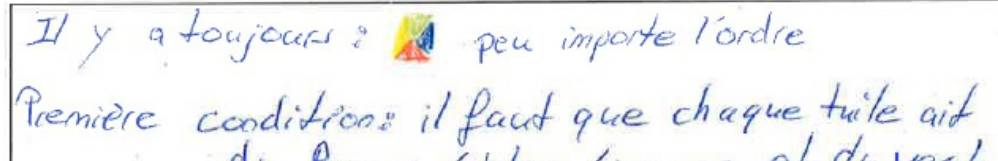 Il y a toujours : peu importe l'ordre
Première condition : il faut que chaque tuile ait